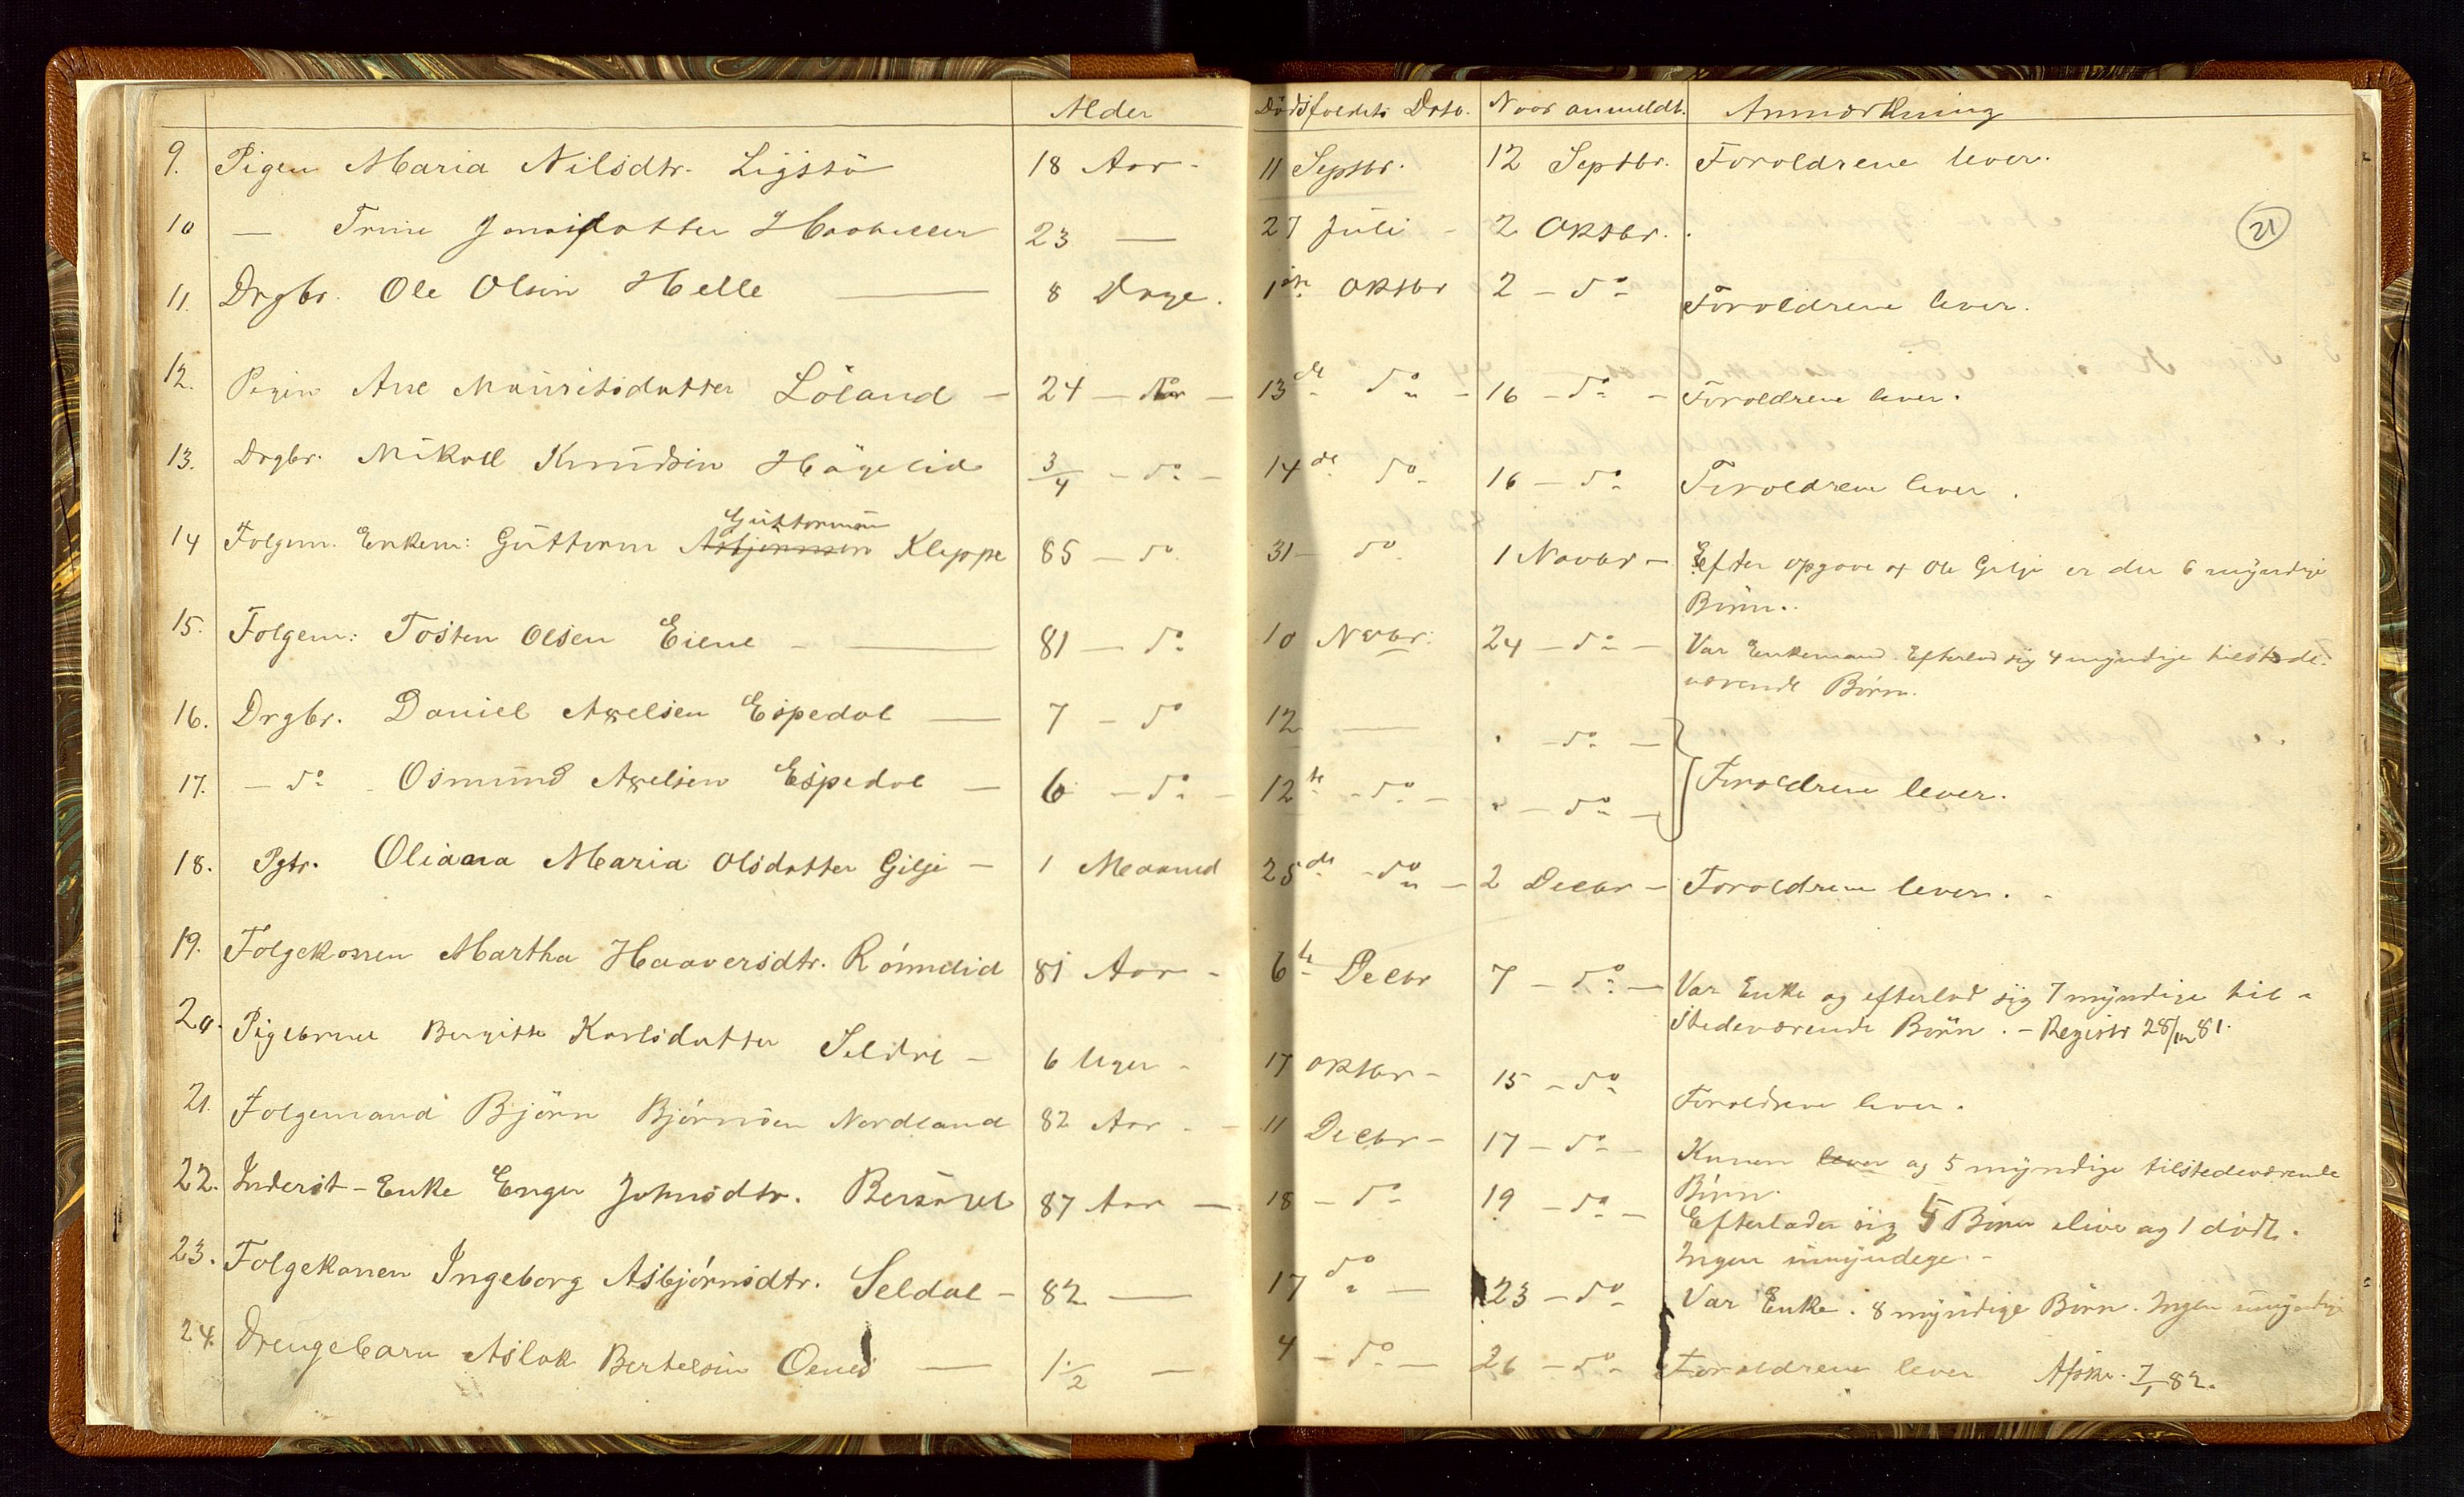 Alder Dödsfaldets Dato. Naar anmeldt. Anmærkning
9. Pigen Maria Nilsdtr. 18 Aar - 11 Septbr. 12 Septbr. Forældrene lever.
10 — Trine 23 — 27 Juli - 2 Oktbr.
21
11. Drgbr. Ole Olsen Helle — 8 Dage. 1ste Oktbr 2 - do Forældrene lever.
12. Pigen Ane Mauritsdatter Löland - 24 - Aar - 13de do - 16 - do - Forældrene lever.
13. Drgbr. Mikall Knudsen Högelid 3/4 - do - 14de do 16 - do Forældrene lever.
Guttormsen
14 Folgem. Enkem: Guttorm Asbjörnsen Kleppe 85 - do 31 - do 1 Novbr - Efter Opgave af Ole Gilje er der 6 myndige
Börn.
15. Folgem: Tosten Olsen Eiene - — 81 - do 10 Novbr. 24 - do - Var Enkemand. Efterlod sig 4 myndige tilstede-
værende Börn.
16. Drgbr. Daniel Axelsen Espedal — 7 - do 12 — " - do -
17. - do - Osmund Axelsen Espedal — 6 - do - 12te - do - " - do - Forældrene lever.
18. Pgbr. Oliana Maria Olsdatter Gilje - 1 Maaned 25de - do - 2 Decbr - Forældrene lever.
19. Folgekonen Martha Haaversdtr. 81 Aar - 6te Decbr 7 - do - Var Enke og efterlod sig 7 myndige til-
stedeværende Börn. - Registr 28/12 81.
20. Pigebarnet Bergitte Karlsdatter Seldal - 6 Uger - 17 Oktbr - 15 - do Forældrene lever.
21. Folgemand Björn Björnsen Nordland 82 Aar - 11 Decbr - 17 - do - Konen lever og 5 myndige tilstedeværende
Börn.
22. Inderst-Enke Enger Johnsdtr. 87 Aar — 18 - do 19 - do - Efterlader sig 5 Börn ilive og 1 död.
Ingen umyndege. -
23. Folgekonen Ingeborg Asbjörnsdtr. Seldal - 82 — 17 do - 23 - do Var Enke. 8 myndige Börn. Ingen umyndige
24. Drengebarn Aslak Bertelsen Oened — 1 1/2 — 4 - do - 26 - do Forældrene lever Afskr. 7/1 82.